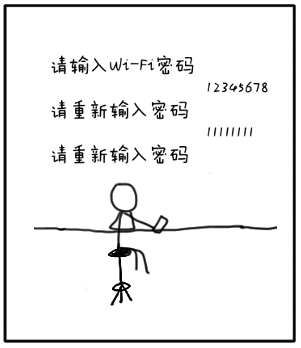 请输入Wi-Fi密码
12345678
请重新输入密码
11111111
请重新输入密码